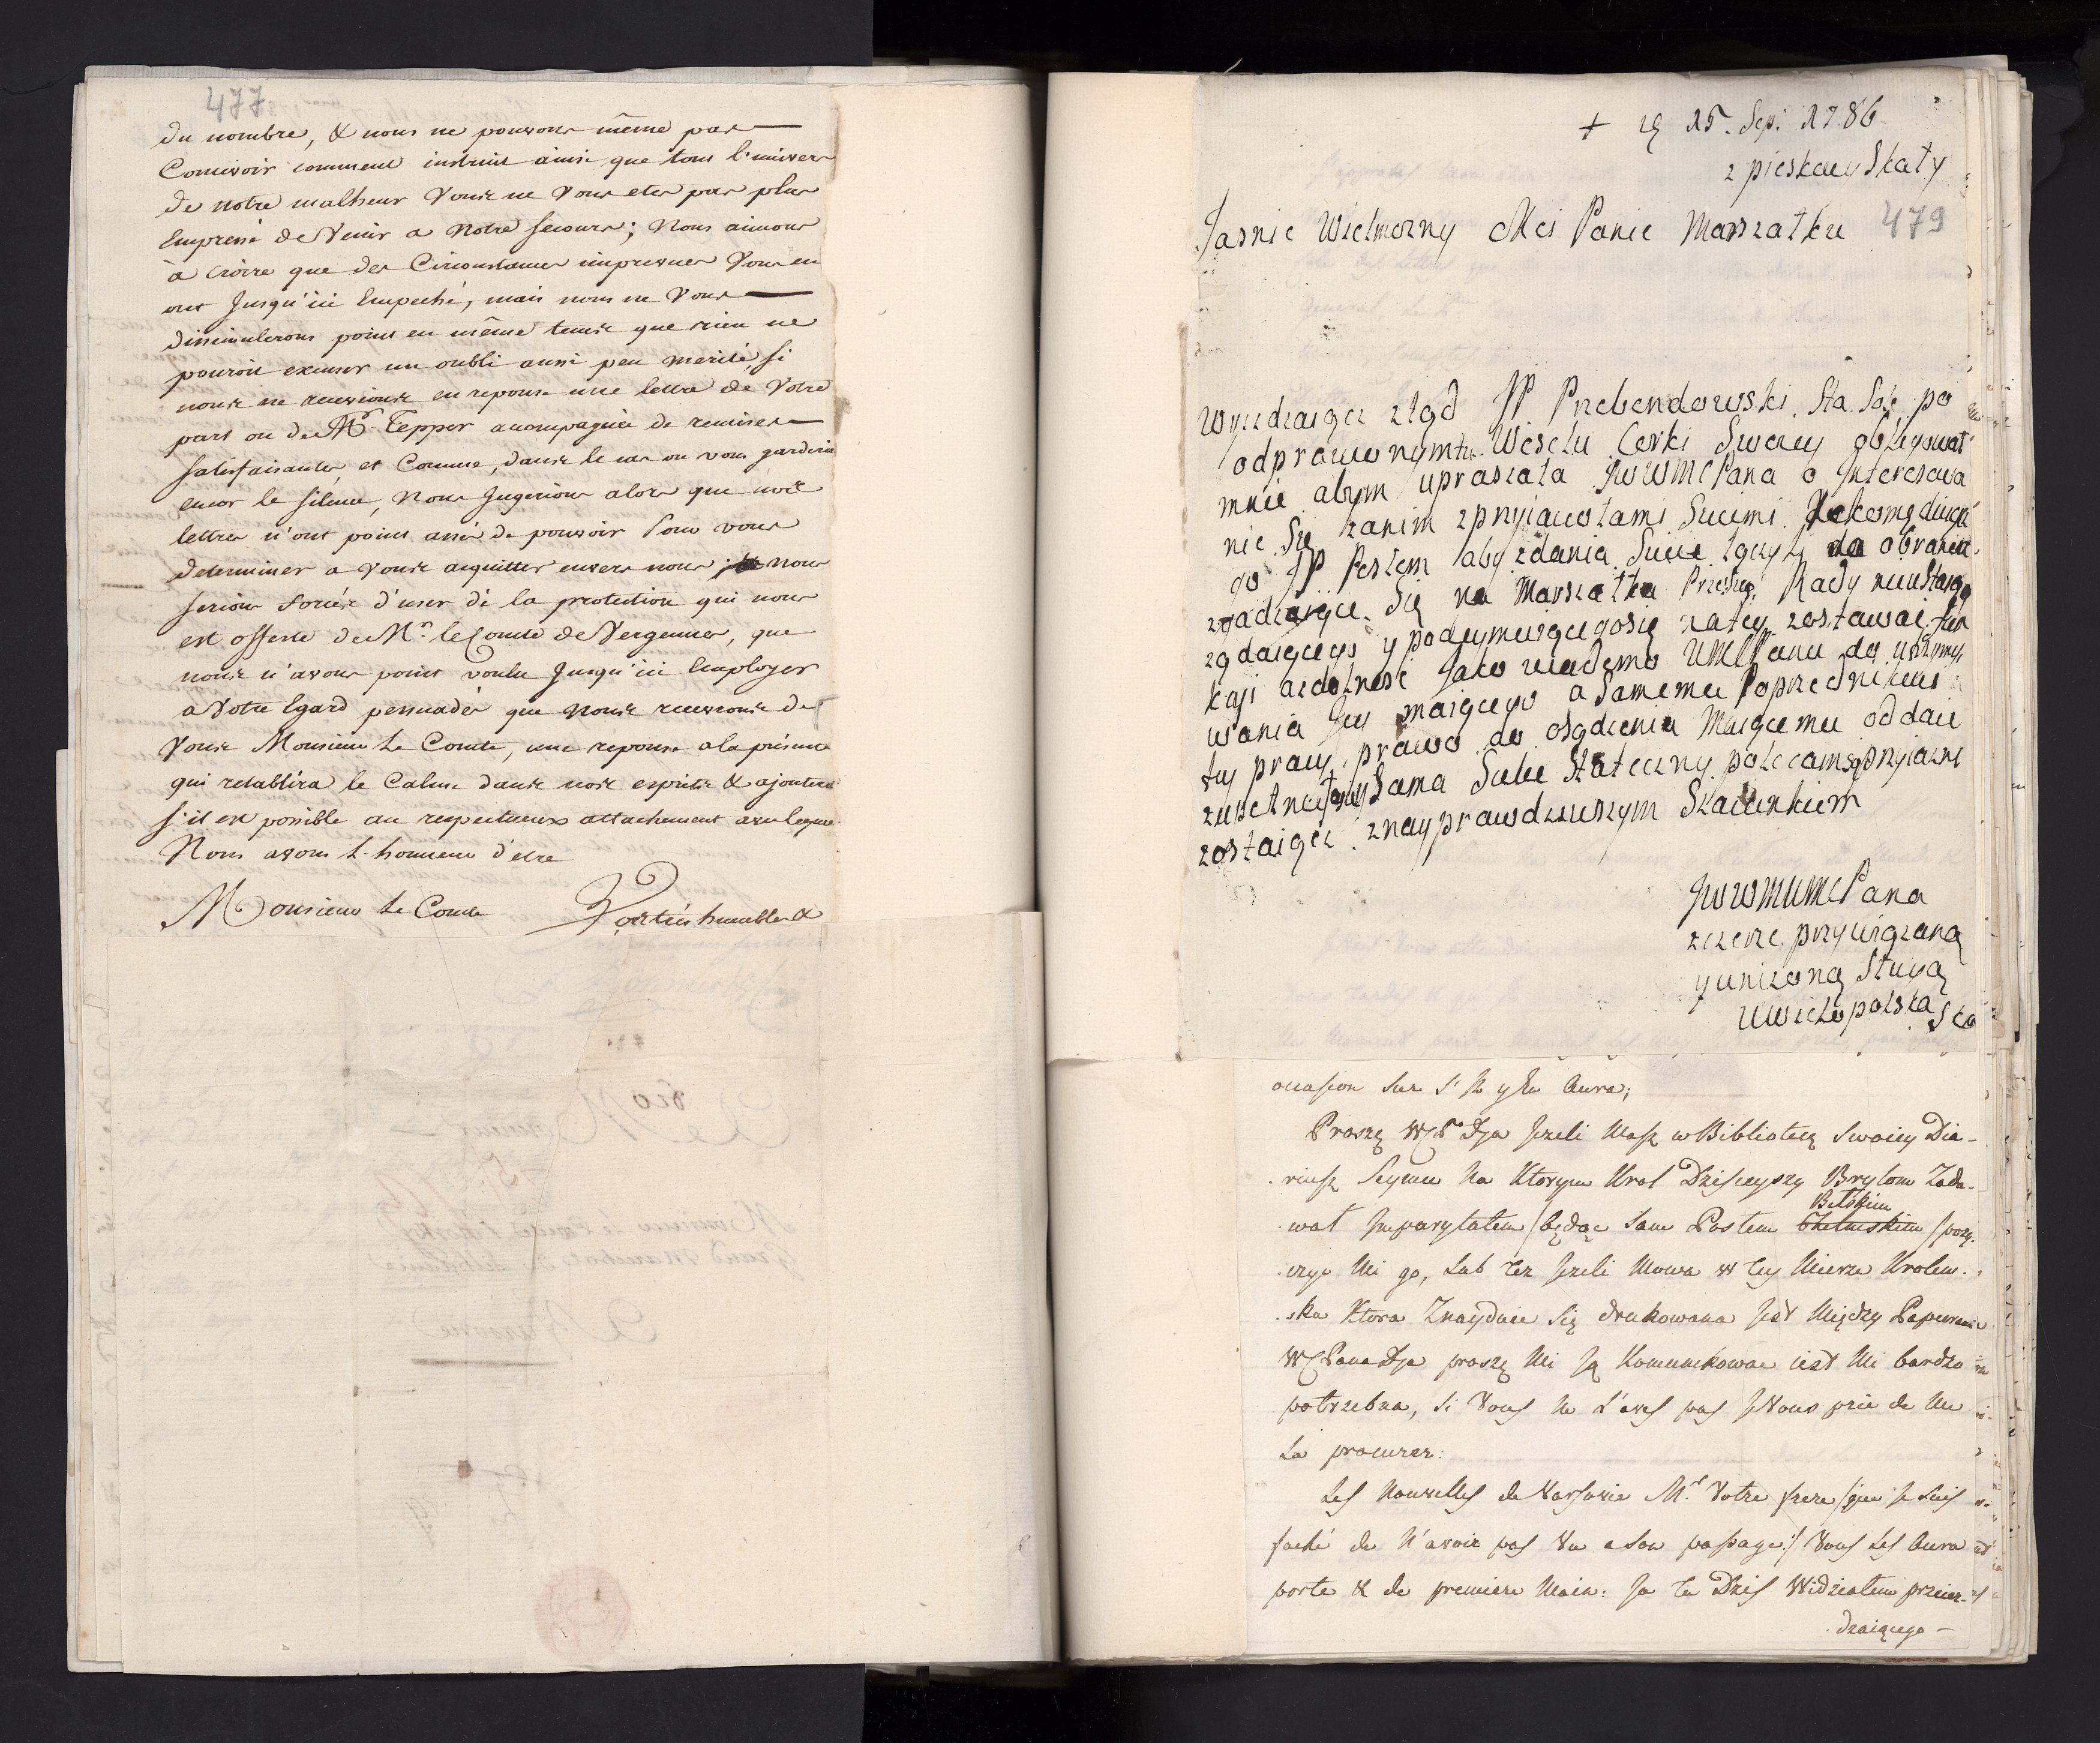 477
du nombre, & nous ne pouvons même pas
Concevoir comment instruit ainsi que tous l'univers
de notre malheur Vous ne Vous etes pas plus
Empressé de Venir a Notre secours; Nous aimons
à croire que des Circonstances imprevues Vous en
ont Jusqu'ici Empeché, mais nous ne Vous
dissimulerons point en même tems que rien ne
pouroit excuser un oubli aussi peu merité, si
nous ne recevions en reponse une lettre de Votre
part ou de Mr Tepper accompagnée de remises
satisfaisantes, et Comme, dans le cas ou vous garderiez
encor le silence, Nous Jugerions alors que nos
lettres n'ont point assés de pouvoir Pour vous
determiner a vous acquitter envers nous; nous
serions forcés d'user de la protection qui nous
est offerte de Mr. le Comte de Vergennes, que
nous n'avons point voulu Jusqu'ici Employer
a Votre Egard persuadés que Nous recevrons de
Vous Monsieur Le Comte, une reponse a la présente
qui retablira le Calme dans nos esprits & ajoutera
s'il est possible au respectueux attachement avec lequel
Nous avons L'honneur d'etre
Monsieur Le Comte Vos très humbles &
+ 15. Sep. 1786
z pieskowy Skały
Jasnie Wielmozny Mci Panie Marszałku 479
Wyiezdzaiącz ztąd JP Przebendowski Sta. Sol. po
odprawionym tu Weselu Corki Swoiey oblegował
mnie abym upraszała JWWMCPana o Interesowa
nie Się zanim z pryiaciołami Swemi
go JP Posłem aby zdania Swe łączyły do obrania
zgadzaiące Się na Marszałka Rady nieustaiący
ządaiącego y podeymuiącego się natey zostawać fun
kcyi a zdolnosc Jako wiadomo UMCPanu do utrzymy
wania Jey maiącego a Samemu Poprzednikowi
tey pracy, prawo do osądzenia Maiącemu oddaie
Sama Sobie Stateczny polecam się przyiazni
zostaiącz znayprawdziwszym Szacunkiem
JWWMUMCPana
szczerze przywiązaną
y unizoną Sługą
Uwielopolska
occasion sur s'il y en Aura;
Proszę WCPa Dja Jezeli Masz w Bibliotecę Swoiey Dia-
riusz Seymu Na Ktorym Krol Dzisieyszy Brylom Zada-
Bełskim
wał Imparytatem /będąc Sam Posłem Chełmskim /pozy-
czyc Mi go, Lub Tez Jezeli Mowa w tey Mierze Krolew-
ska Ktora Znayduie Się drukowana Jest Między Papierami
WCPana Dja proszę Mi Ją Komunikowac iest Mi bardzo
potrzebna, Si Vous Ne L'aves pas Je Vous prie de Me
La procurer:
Les Nouvelles de Varsovie Mr. Votre frere /que Je Suis
faché de N'avoir pas Vu a Son passage:/ Vous Les Aura
porté & de premiere Main: Ja Tu Dzis Widziałem przeiez-
dzaiącego-